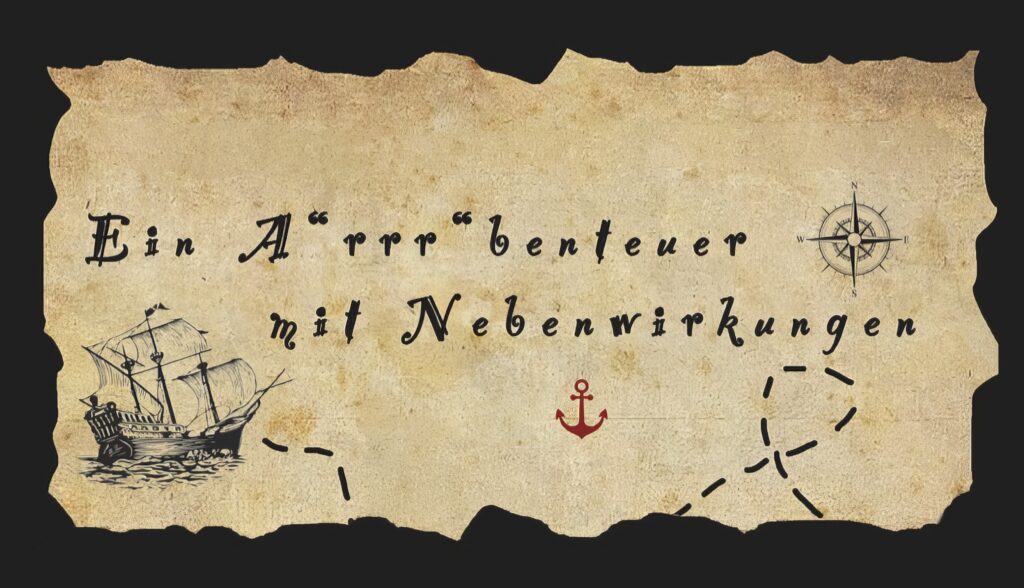 Ein A“rrr“benteuer
mit Nebenwirkungen
N
W E
S